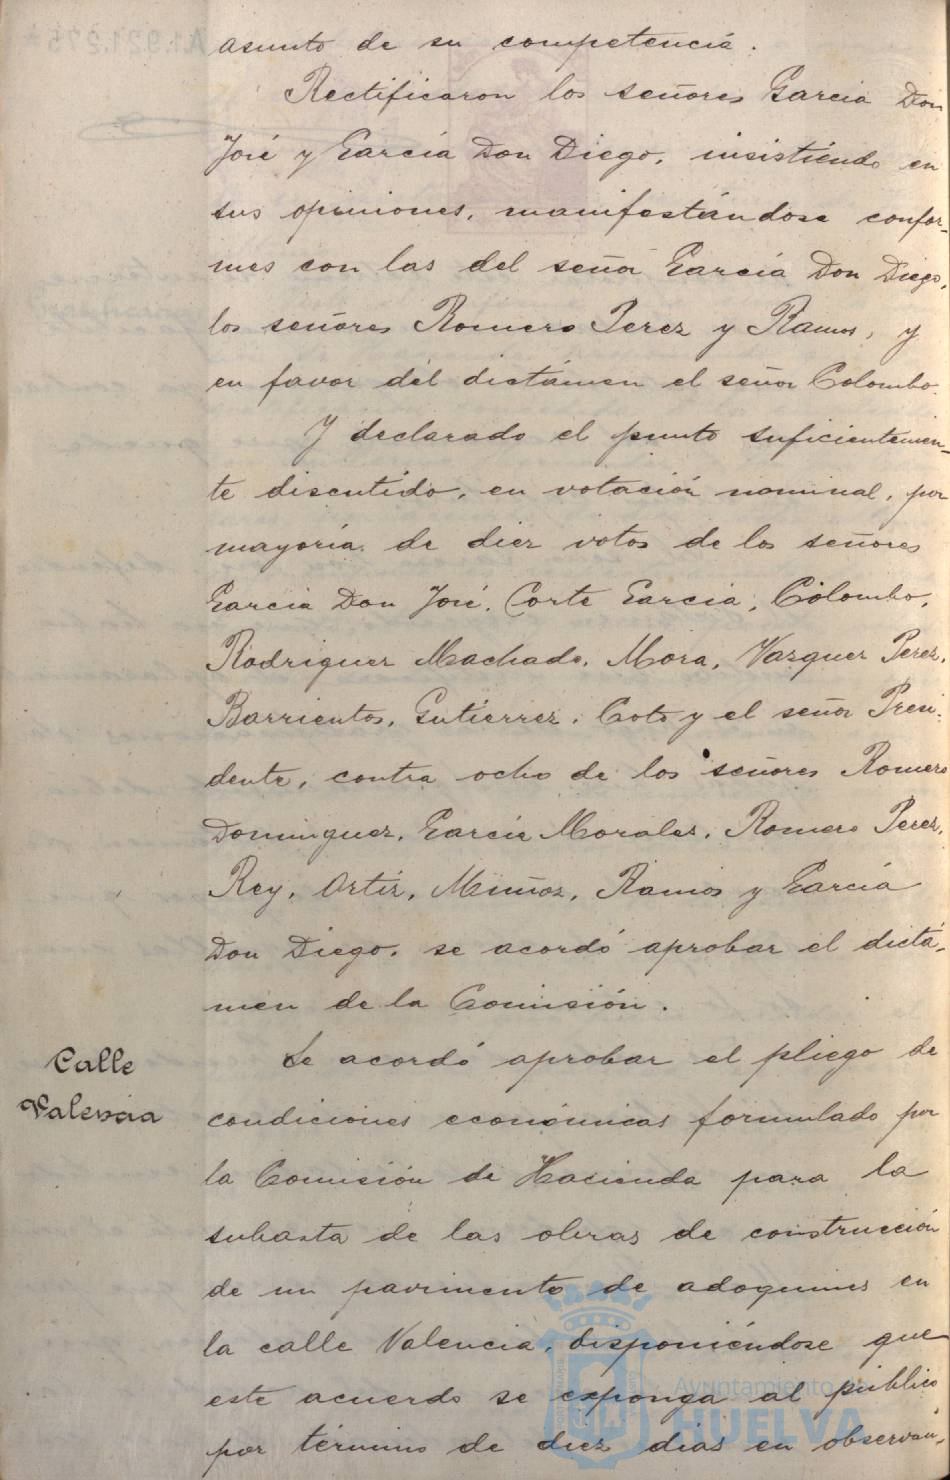 asunto de su competencia.
Rectificaron los señores Garcia Don
José y García Don Diego, insistiendo en
sus opiniones, manifestándose confor-
mes con las del señor García Don Diego,
los señores Romero Perez y Ramos, y
en favor del dictámen el señor Colombo.
Y declarado el punto suficientemen-
te discutido, en votación nominal, por
mayoría de diez votos de los señores
Garcia Don José, Corte Garcia, Colombo,
Rodriguez Machado, Mora, Vazquez Perez,
Barrientos, Gutierrez, Coto y el señor Presi-
dente, contra ocho de los señores Romero
Dominguez, García Morales, Romero Perez,
Rey, Ortíz, Muñoz, Ramos y García
Don Diego, se acordó aprobar el dictá-
men de la Comisión.
Calle
Valencia
Se acordó aprobar el pliego de
condiciones económicas formulado por
la Comisión de Hacienda para la
subasta de las obras de construcción
de un pavimento de adoquines en
la calle Valencia, disponiéndose que
este acuerdo se exponga al público
por término de diez dias en observan-
Ayuntamiento de
HUELVA